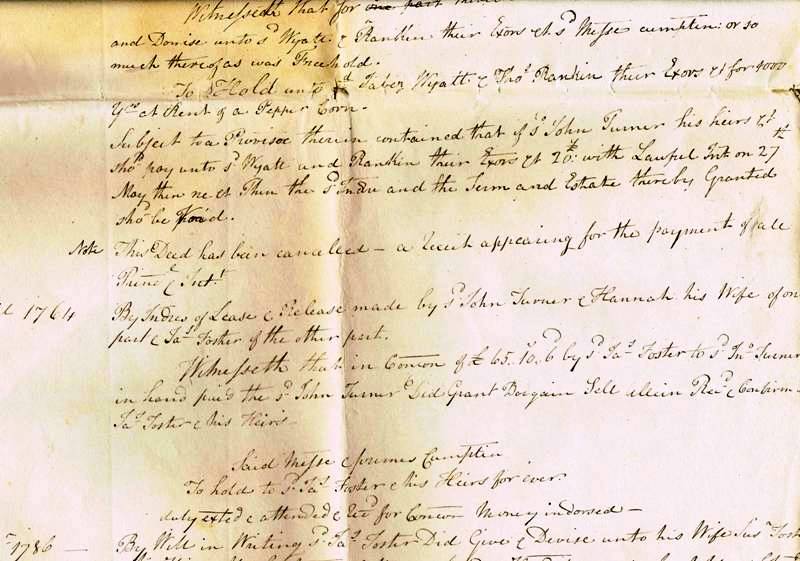 Witnesseth that for one part
and Demise unto sd. Wyatt & Rankin their Exors &c sd. Messe cumptin: or so
much thereof as was Freehold.
To Hold unto sd. Jabez Wyatt & Thos. Rankin their Exors &c for 4000
Yrs. at Rent of a Pepper Corn.
Subject to a Provisoe therein contained that if sd. John Turner his heirs &c
shod. pay unto sd. Wyatt and Rankin their Exors &c 26£ with Lawful Int. on 27th
May then next Then the sd. Indre and the Term and Estate thereby Granted
shod. be Void.
Note This Deed has been cancelled – a receit appearing for the payment of
Princl. & Intt.
1764 By Indres of Lease & Release made by sd. John Turner & Hannah his Wife of one
part & Jas. Foster of the other part.
Witnesseth that in Concon of £65.10.6 by sd. Jas. Foster to sd. Jno. Turner
in hand paid the sd. John Turner Did Grant Bargain Sell alien Rele. & Confirm
Jas. Foster & his Heirs
Said Messe & premes Cumptin
To hold to sd. Jas. Foster & his Heirs for ever
duly exted & attended & Rect for Concon Money indorsed –
1786 – By Will in Writing sd. Jas. Foster Did Give & Devise unto his Wife Sus. Foster